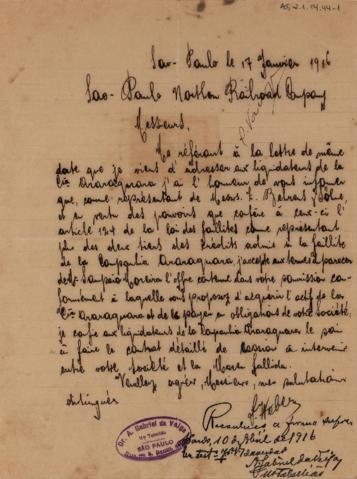 AG.2.1.14.44-1
Sao-Paulo le 17 Janvier 1916
Sao-Paulo Northern Railroad Company
Messieurs,
Me référant à la lettre de même
date que je viens d'adresser aux liquidateurs de la
Cie Araraquara j'ai l'honneur de vous informer
que, comme représentant de Messrs
et en vertu des pouvoirs que confère à ceux-ci l'
article 124 de la loi des faillites comme représentant
plus des deux tiers des crédits admis à la faillite
de la Companhia Araraquara j'accepte aux termes du
de Sampaio Moreira l'offre contenue dans votre soumission
conformément à laquelle vous proposez d'acquérir l'actif de la
Cie Araraquara et de la payer en obligations de votre société;
je confie aux liquidateurs de la Companhia Araraquara le soin
à faire le contrat détaillé de cession à intervenir
entre votre société et la Masse faillie.
Veuillez agréer, Messieurs, mes salutations
distinguées
Reconheço a firma supra
10 de Abril de 1916
Em testº da verdade
Dr. A. Gabriel da Veiga
Tabellião
SÃO PAULO